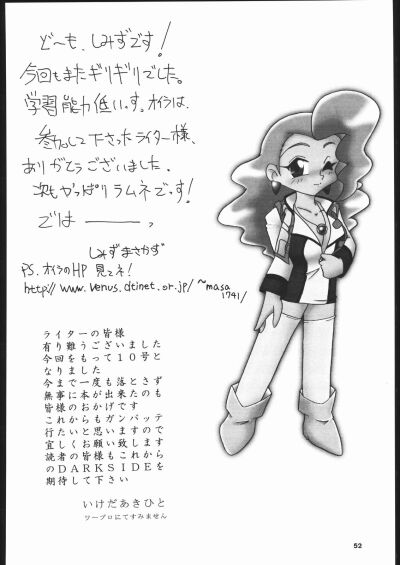 ど〜も、しみずです！
今回もまたギリギリでした。
学習能力低いっす。オイラは、
参加して下さったライター様、
ありがとうございました。
次もやっぱりラムネでっす！
では———っ
しみずまさかず
PS. オイラのHP 見てネ！
http://www.venus.dtinet.or.jp/~masa
1741/
ライターの皆様
有り難うございました
今回をもって１０号と
なりました
今まで一度も落とさず
無事に本が出来たのも
皆様のおかげです
これからもガンバッテ
行たいと思いますので
宜しくお願い致します
読者の皆様もこれから
のＤＡＲＫＳＩＤＥを
期待して下さい
いけだあきひと
ワープロにてすみません
52